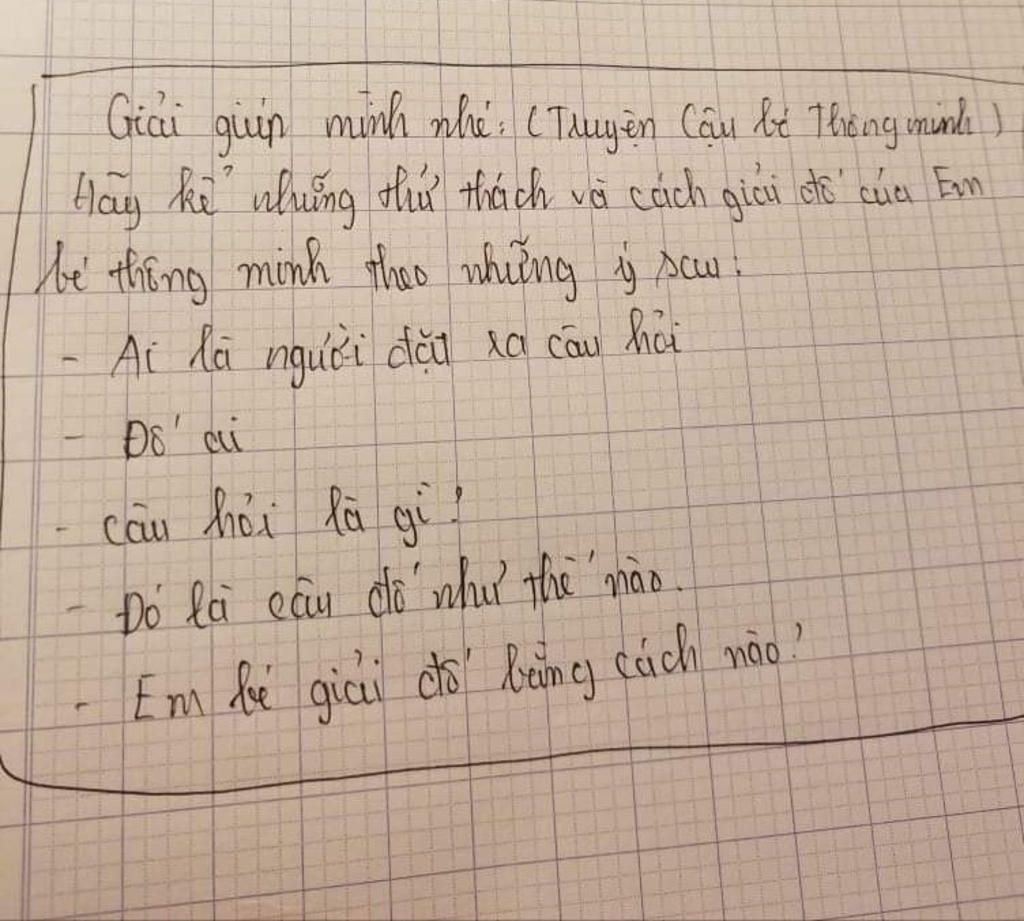 Giải giúp mình nhé: (Truyện Cậu bé Thông minh)
Hãy kể những thử thách và cách giải đố của Em
bé thông minh theo những ý sau:
- Ai là người đặt ra câu hỏi
- Đố ai
- câu hỏi là gì?
- Đó là câu đố như thế nào.
- Em bé giải đố bằng cách nào?